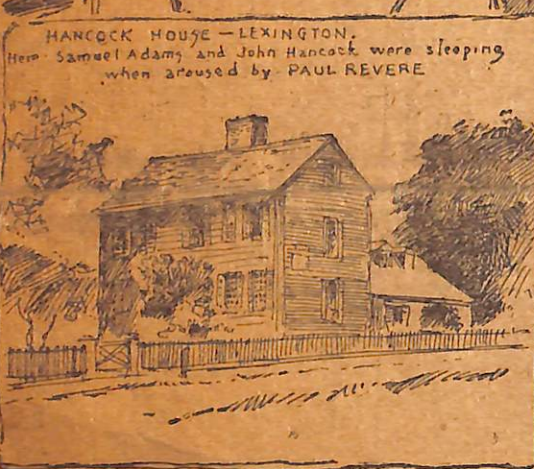 HANCOCK HOUSE – LEXINGTON.
Here Samuel Adams and John Hancock were sleeping
when aroused by PAUL REVERE